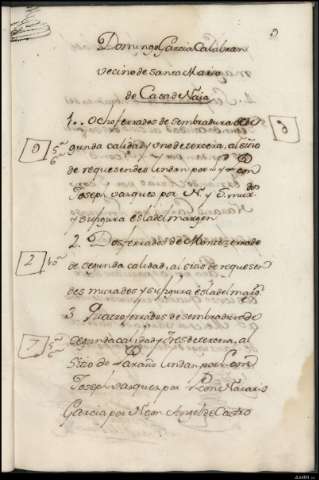 9
Domingo Garcia Calabran
vecino de Santa Maria
de Casa de Naia
1.. ocho ferrados de sembradura de se
gunda calidad y uno de tercera, al sitio
9 5ª 6ª
3
de requesendes Lindan por
Joseph vazquez por N. y S.
y su figura es la del margen
2. Dos ferrados de Monte zerrado
2
de segunda calidad, al sitio de requesen
des murados y su figura es la del marg.
3. Quatro ferrados de sembradura de
7 5ª 6ª
segunda calidad y tres de tercera, al
Sitio do Laraño Lindan por L. con
Joseph vazquez por P. con
Garcia por N. con Angel de Castro